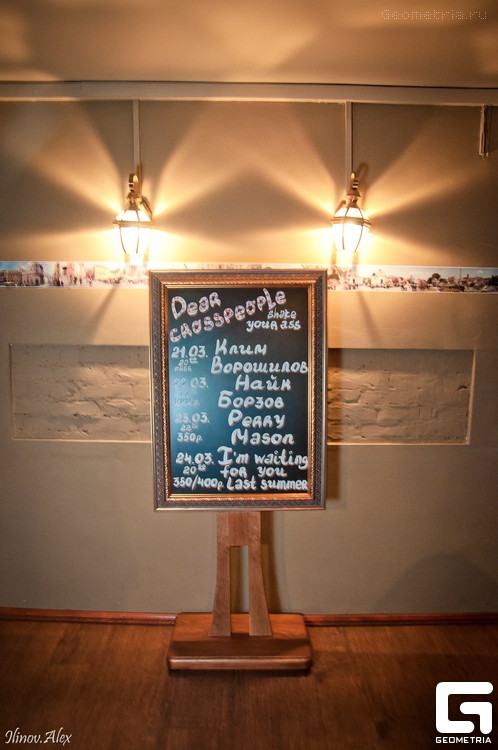 Geometria.ru
Dear
CROSSPEOPLE
Shake
your ass
21.03. Клим
20⁰⁰ Ворошилов
22.03. Найк
Борзов
23.03. Perry
22⁰⁰ Mason
350р.
24.03. I'm waiting
20⁰⁰ for you
350/400р. Last summer
Ilinov.Alex
GEOMETRIA